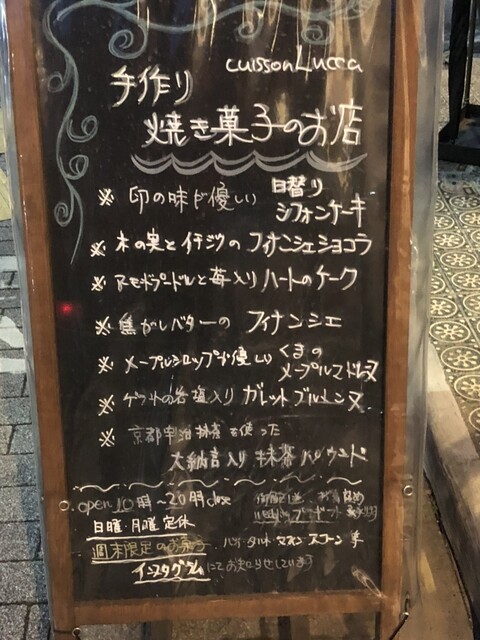 cuisson Lucca
手作り
焼き菓子のお店
※ 卵の味が優しい 日替り
シフォンケーキ
※ 木の実とイチジクの フォンシェショコラ
※ アーモンドプードルと苺入り ハートのケーク
※ 焦がしバターの フィナンシェ
※ メープルシロップが優しい くまの
メープルマドレーヌ
※ ゲランドの岩塩入り ガレットブルトンヌ
※ 京都宇治抹茶を使った
大納言入り 抹茶パウンド
open 10時〜20時 close
日曜・月曜 定休
週末限定のお菓子 タルト マフィン スコーン 等
インスタグラムにてお知らせしています